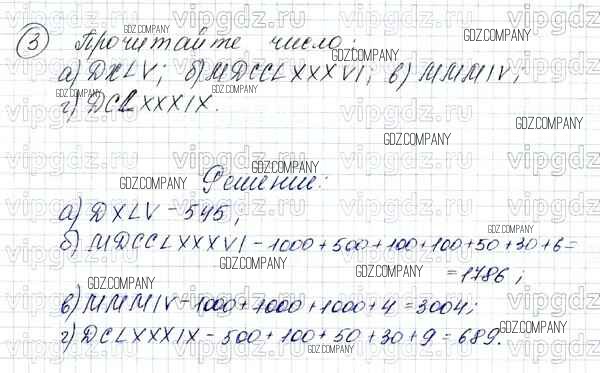 3 Прочитайте число:
а) DXLV; б) MDCCLXXXVI; в) MMMIV;
г) DCLXXXIX.
Решение:
а) DXLV - 545;
б) MDCCLXXXVI - 1000 + 500 + 100 + 100 + 50 + 30 + 6 =
= 1786;
в) MMMIV - 1000 + 1000 + 1000 + 4 = 3004;
г) DCLXXXIX - 500 + 100 + 50 + 30 + 9 = 689.
GDZ.COMPANY
vipgdz.ru